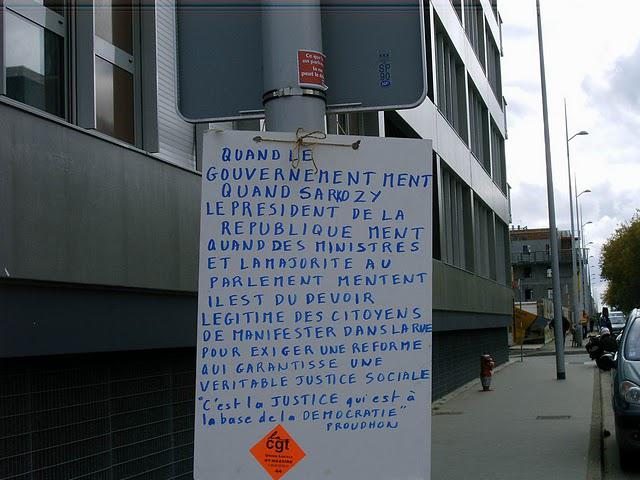 Ce que
QUAND LE
GOUVERNEMENT MENT
QUAND SARKOZY
LE PRESIDENT DE LA
REPUBLIQUE MENT
QUAND DES MINISTRES
ET LA MAJORITE AU
PARLEMENT MENTENT
IL EST DU DEVOIR
LEGITIME DES CITOYENS
DE MANIFESTER DANS LA RUE
POUR EXIGER UNE REFORME
QUI GARANTISSE UNE
VERITABLE JUSTICE SOCIALE
"C'est la JUSTICE qui est à
la base de la DEMOCRATIE"
PROUDHON
la
cgt
44